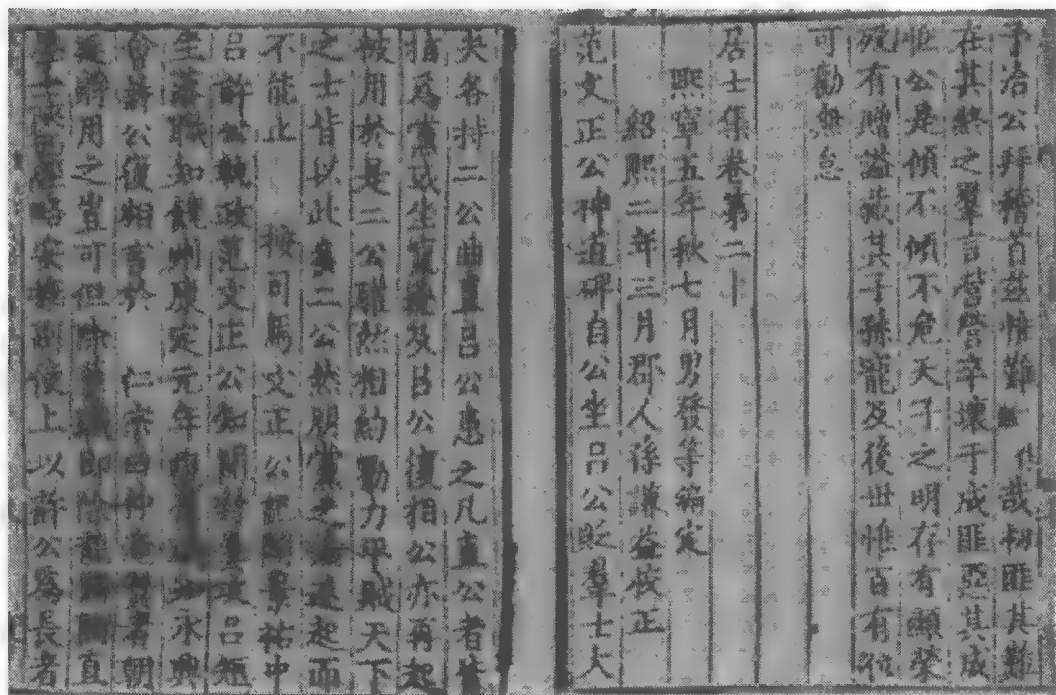 予治公拜稽首茲惟難哉初匪其難
在其終之羣言營營卒壞于成匪惡其成
惟公是傾不傾不危天子之明存有顯榮
歿有贈謚藏其子孫寵及後世惟百有位
可勸無怠
居士集卷第二十
熙寧五年秋七月男發等編定
紹熙二年三月郡人孫謙益校正
范文正公神道碑自公坐呂公貶羣士大
夫各持二公曲直呂公患之凡直公者皆
指爲黨或坐竄逐及呂公復相公亦再起
被用於是二公驩然相約勠力平賊天下
之士皆以此多二公然朋黨之論遂起而
不能止 按司馬文正公記聞景祐中
呂許公執政范文正公知開封屢攻呂短
坐落職知饒州康定元年 永興
會許公復相言於 仁宗曰仲淹賢者朝
廷將用之豈可但除舊職即除龍圖閣直
學士陝西經略安撫副使上以許公爲長者